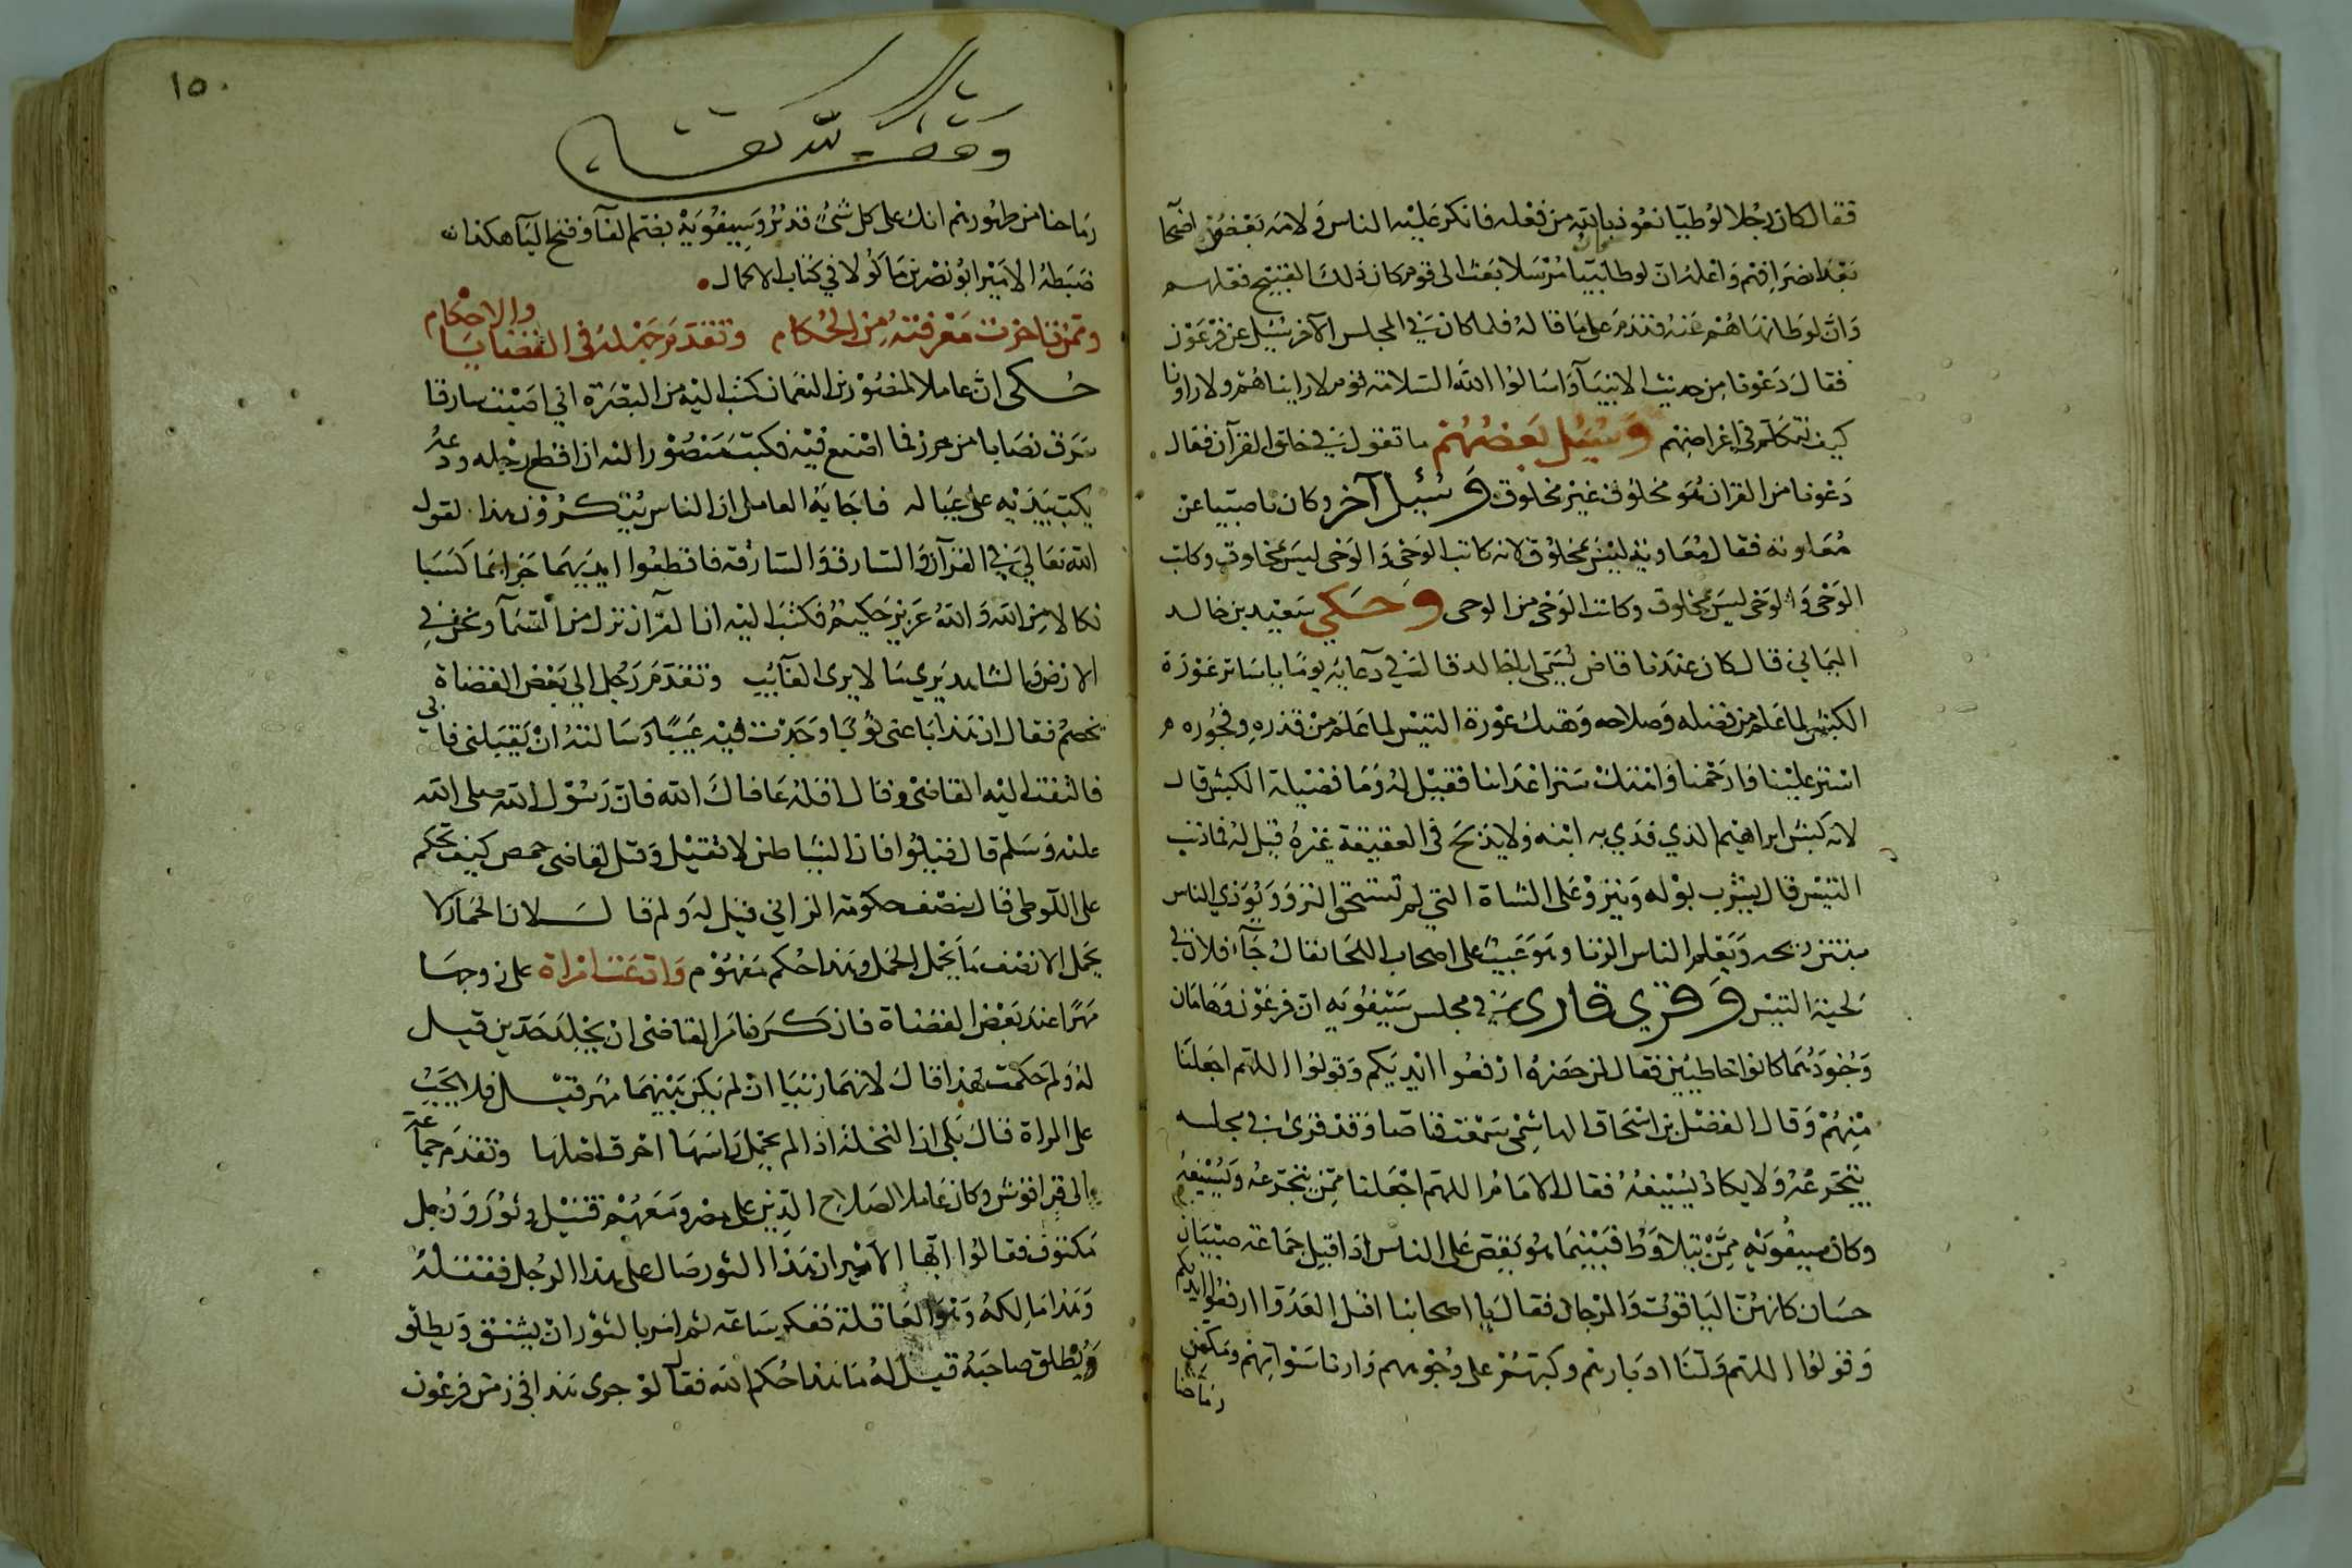 فقال كان رجلا لوطيا نعوذ بالله من فعله فانكر عليه الناس ولامه بعض اصحابه
بعد انصرافهم واعلمه ان لوطا نبيا مرسلا بعث الى قوم كان ذلك القبيح فعلهم
وان لوطا نهاهم عنه فندم على ما قاله فلما كان في المجلس الآخر سئل عن فرعون
فقال دعونا من حديث الانبياء واسالوا الله السلامة قوم لا رايناهم ولا راونا
كيف نتكلم في اعراضهم وسئل بعضهم ما تقول في خلق القرآن فقال
دعونا من القران هو مخلوق غير مخلوق وسئل آخر وكان ناصبيا عن
معاوية فقال معاوية ليس بمخلوق لانه كاتب الوحي والوحي ليس بمخلوق وكاتب
الوحي والوحي ليس بمخلوق وكاتب الوحي من الوحي وحكي سعيد بن خالد
اليماني قال كان عندنا قاض يسمى ابا خالد قال في دعايه يوما يا ساتر عورة
الكبش لما علم من فضله وصلاحه وهتك عورة التيس لما علم من قذره وفجوره
استر علينا وارحمنا واهتك ستر اعدائنا فقيل له وما فضيلة الكبش قال
لانه كبش ابراهيم الذي فدي به ابنه ولا يذبح في العقيقة غيره قيل له فما ذنب
التيس قال يشرب بوله وينزو على الشاة التي لم تستحق النزو ويوذي الناس
بنتن ريحه ويعلم الناس الزنا وهو عيب على اصحاب اللحا يقال جاء فلان في
لحية التيس وقرئ قارئ في مجلس سيفويه ان فرعون وهامان
وجنودهما كانوا خاطئين فقال لمن حضره ارفعوا ايديكم وقولوا اللهم اجعلنا
منهم وقال الفضل بن اسحاق الهاشمي سمعت قاصا وقد قرئ في مجلسه
يتجرعه ولا يكاد يسيغه فقال الامام اللهم اجعلنا ممن يتجرعه ويسيغه
وكان سيفويه ممن يتلاوط فبينما هو يقص على الناس اذ اقبل جماعة صبيان
حسان كانهن الياقوت والمرجان فقال يا اصحابنا اقبل العدو ارفعوا ايديكم
وقولوا اللهم ولنا ادبارهم وكبهم على وجوههم وارنا سواتهم ومكن
رماحنا
١٥٠
وقف لله تعالى
رماحنا من ظهورهم انك على كل شئ قدير وسيفويه بضم الفاء وفتح الياء هكذا
ضبطه الامير ابو نصر بن ماكولا في كتاب الاكمال
وممن تاخرت معرفته من الحكام وتقدم جهله في القضايا والاحكام
حكى ان عاملا لمنصور بن النعمان كتب اليه من البصرة اني اصبت سارقا
سرق نصابا من حرز فما اصنع فيه فكتب منصور اليه ان اقطع رجله ودعه
يكتب بيديه على عياله فاجابه العامل ان الناس ينكرون هذا لقول
الله تعالى في القرآن والسارق والسارقة فاقطعوا ايديهما جزاء بما كسبا
نكالا من الله والله عزيز حكيم فكتب اليه ان القرآن نزل من السماء ونحن في
الارض والشاهد يرى ما لا يرى الغائب وتقدم رجل الى بعض القضاة
بخصم فقال ان هذا باعني ثوبا وجدت فيه عيبا وسالته ان يقيلني فابى
فالتفت اليه القاضي وقال اقله عافاك الله فان رسول الله صلى الله
عليه وسلم قال قيلوا فان الشياطين لا تقيل وقيل لقاضي حمص كيف تحكم
على اللوطي قال بنصف حكومة الزاني قيل له ولم قال لان الحمار لا
يحمل الا نصف ما يحمل الجمل وهذا حكم مفهوم وادعت امراة على زوجها
مهرا عند بعض القضاة فانكر فامر القاضي ان يجلد حدين قيل
له ولم حكمت بهذا قال لانهما زنيا ان لم يكن بينهما مهر قيل فلا يجب
على المراة قال بلى ان النخلة اذا لم يحمل راسها احرق اصلها وتقدم جماعة
الى قراقوش وكان عاملا لصلاح الدين على مصر ومعهم قتيل وثور ورجل
مكتوف فقالوا ايها الامير ان هذا الثور صال على هذا الرجل فقتله
وهذا مالكه وهو العاقلة ففكر ساعة ثم امر بالثور ان يشنق ويطلق
ويطلق صاحبه قيل له ما هذا حكم الله فقال لو جرى هذا في زمن فرعون